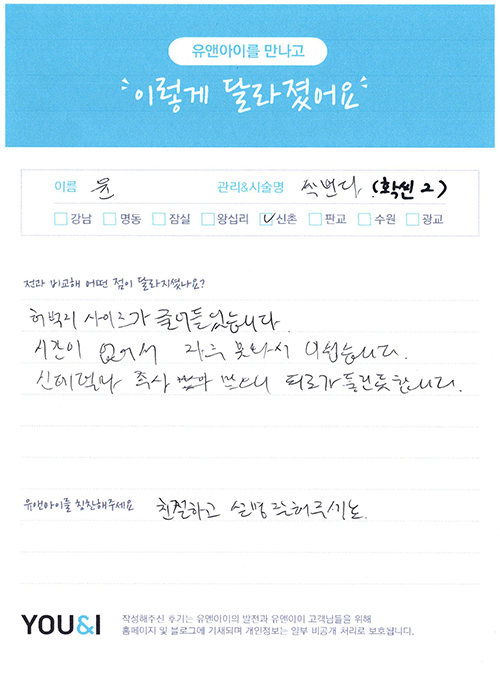 유앤아이를 만나고
이렇게 달라졌어요
이름 윤 관리&시술명 싹번다 (확씬 2)
강남 명동 잠실 왕십리 ✓신촌 판교 수원 광교
전과 비교해 어떤 점이 달라지셨나요?
허벅지 사이즈가 줄어들었습니다.
시간이 없어서 자주 못와서 아쉽습니다.
신데렐라 주사 맞으니 피로가 풀린듯합니다.
유앤아이를 칭찬해주세요 친절하고 설명 잘해주시는
YOU&I
작성해주신 후기는 유앤아이의 발전과 유앤아이 고객님들을 위해
홈페이지 및 블로그에 기재되며 개인정보는 일부 비공개 처리로 보호됩니다.